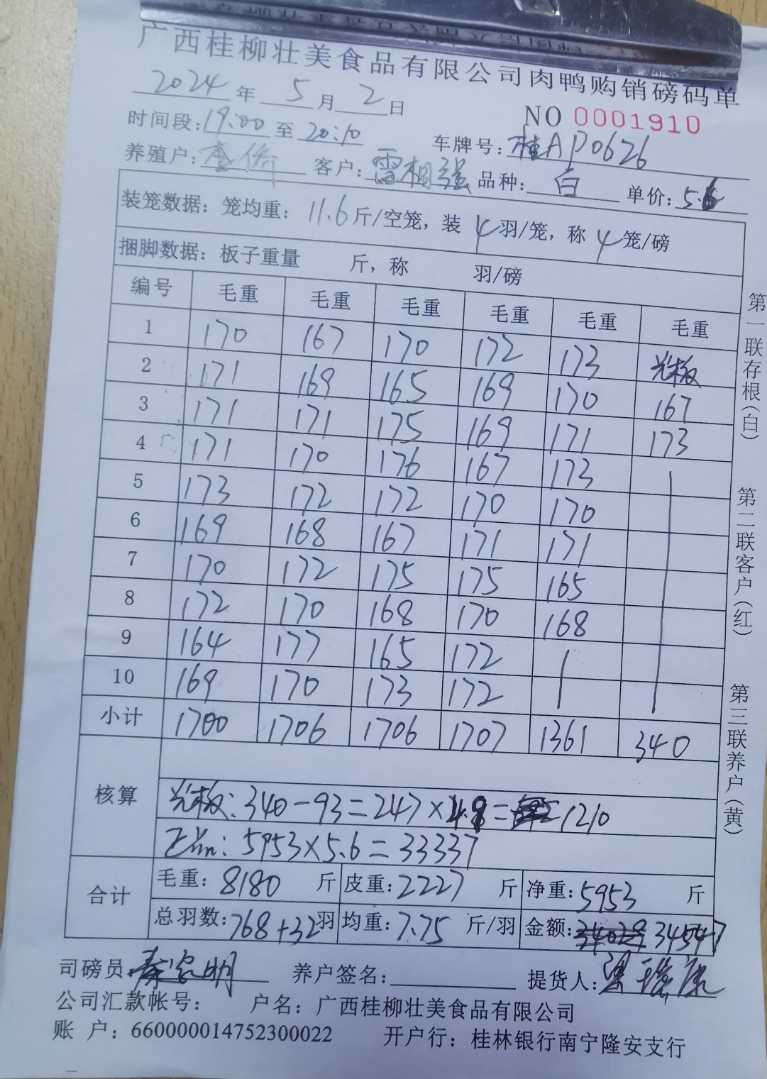 广西桂柳壮美食品有限公司肉鸭购销磅码单
2024年5月2日 NO 0001910
时间段:19:00至20:10 车牌号:桂AP0626
养殖户: 客户:雷相强 品种:白 单价:5.6
装笼数据:笼均重:11.6斤/空笼,装4羽/笼,称4笼/磅
捆脚数据:板子重量 斤,称 羽/磅
编号 毛重 毛重 毛重 毛重 毛重 毛重
1 170 167 170 172 173 光板
2 171 169 165 169 170 167
3 171 171 175 169 171 173
4 171 170 176 167 173
5 173 172 172 170 170
6 169 168 167 171 171
7 170 172 175 175 165
8 172 170 168 170 168
9 164 177 165 172
10 169 170 173 172
小计 1700 1706 1706 1707 1361 340
核算
光板:340-93=247×4.9=1210
5953×5.6=33337
合计 毛重:8180斤 皮重:2227斤 净重:5953斤
总羽数:768+32羽 均重:7.75斤/羽 金额:34547
司磅员 养户签名: 提货人:
公司汇款帐号: 户名:广西桂柳壮美食品有限公司
账 户:660000014752300022 开户行:桂林银行南宁隆安支行
第一联存根(白)
第二联客户(红)
第三联养户(黄)